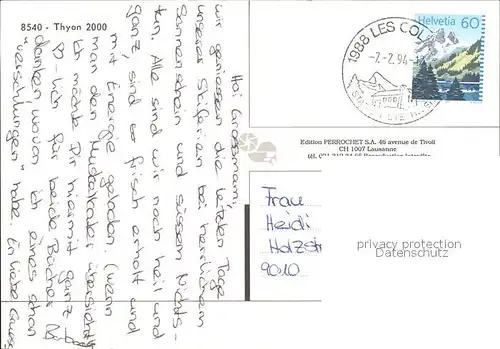 8540 - Thyon 2000
Hoi Grossmami,
wir geniessen die letzten Tage
unserer Skiferien bei herrlichem
Sonnenschein und süssem Nichts-
tun. Alle sind wir noch heil und
ganz, sind so frisch erholt und
mit Energie geladen. (wenn
man den Muskelkater übersieht)
Ich möchte Dir hiermit ganz
für beide Bücher
danken, wovon ich eines schon
"verschlungen" habe. En liebe Gruss
Helvetia 60
1988 LES COL
-7.-2.94-
Edition PERROCHET S.A. 46 avenue de Tivoli
CH 1007 Lausanne
Frau
Heidi
Holzstr
9010
privacy protection
Datenschutz